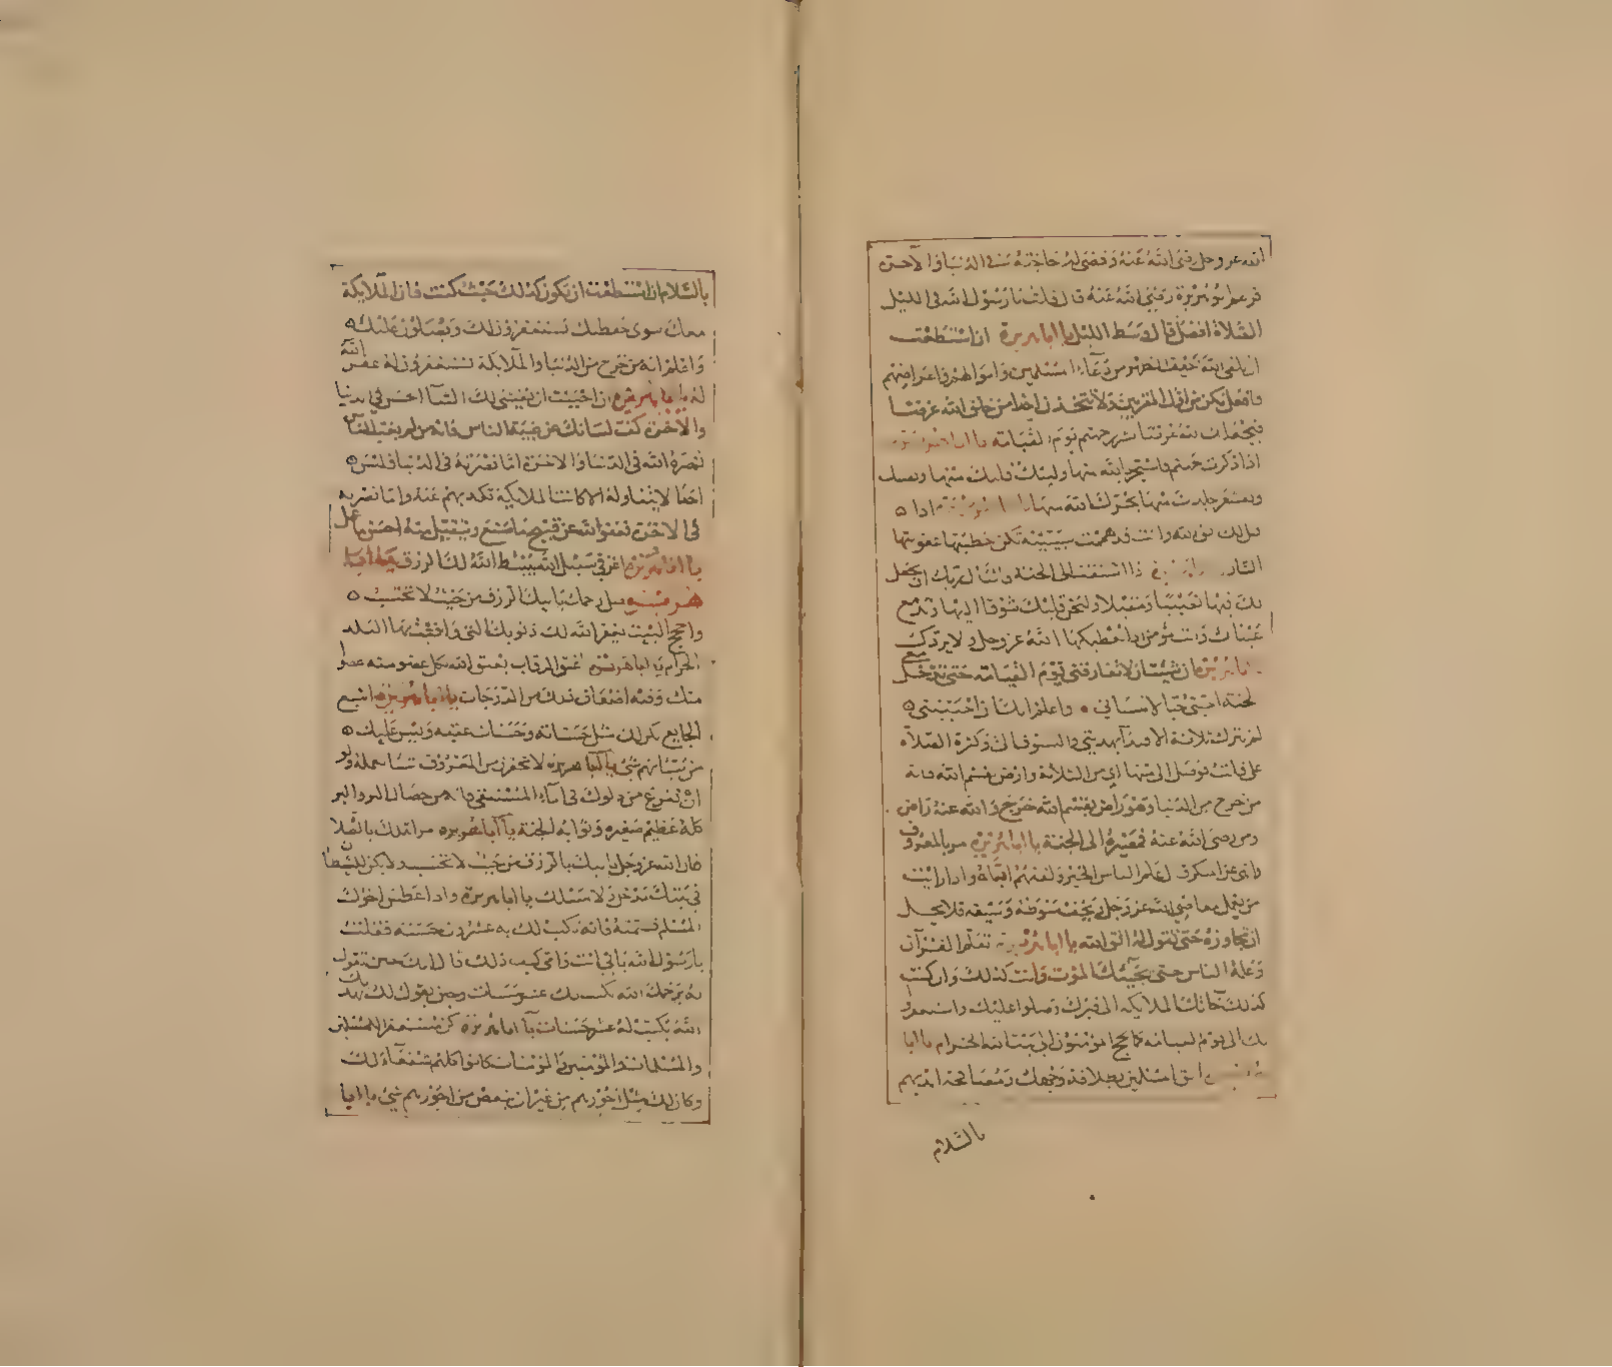 الله عز وجل رضى الله عنه وقضى له حاجته فى الدنيا والآخرة
رضى الله عنه قال قلت يا رسول الله فى الليل
الصلاة افضل قال وسط الليل يا ابا هريرة ان استطعت
ان تلقى الله خفيف الظهر من دماء المسلمين واموالهم واعراضهم
وافعل تكن من اول المقربين ولا تتخذن احدا من خلق الله غرضا
فيجعلك الله غرضا لشرر جهنم يوم القيامة يا ابا هريرة
اذا ذكرت جهنم فاستجر بالله منها وليبك قلبك منها ونفسك
ويقشعر جلدك منها يجرك الله منها يا ابا هريرة اذا
الله وانت قد هممت بسيئة تكن خطيتها عقوبتها
النار يا ابا هريرة اذا اشتقت الى الجنة فاسأل ربك ان يجعل
لك فيها نصيبا ومقيلا وليحن قلبك شوقا اليها وتدمع
عيناك وانت مؤمن اذا يعطيكها الله عز وجل ولا يردك
يا ابا هريرة ان شئت ان لا تفارقنى يوم القيامة حتى تدخل معى
الجنة احبنى حبا لا تنسانى واعلم انك ان احببتنى
لم تترك ثلاثة
على فانت توصل الى منها اى من الثلاثة وارض بقسم الله فانه
من خرج من الدنيا وهو راض بقسم الله خرج والله عنه راض
ومن رضى الله عنه فمصيره الى الجنة يا ابا هريرة مر بالمعروف
وانه عن المنكر علم الناس الخير ولقنهم اياه واذا رايت
من يعمل بمعاصى الله عز وجل يخف سوطه وسيفه فلا يحل
ان تجاوزه حتى تقول له اتق الله يا ابا هريرة تعلم القرآن
وعلمه الناس حتى يجيئك الموت وانت كذلك وان كنت
كذلك جاءتك الملايكة الى قبرك وصلوا عليك واستغفروا
لك الى يوم القيامة كما يحج المؤمنون الى بيت الله الحرام يا ابا
هريرة الق المسلمين بطلاقة وجهك ومصافحة ايديهم
بالسلام
بالسلام ان استطعت ان تكون كذلك حيث كنت فان الملايكة
معك سوى حفظتك يستغفرون لك ويصلون عليك
واعلم انه من خرج من الدنيا والملايكة تستغفرون له غفر الله
له يا ابا هريرة ان احببت ان يفشى لك الثنا الحسن فى الدنيا
والآخرة كف لسانك عن غيبة الناس فانه من لم يغتب الناس
نصره الله فى الدنيا والاخرة اما نصرته فى الدنيا فليس
احدا لا يتناوله الا كانت الملايكة تكذبهم عنه واما نصرته
فى الاخرة فعفو الله عن قبيح ما صنع ويتقبل منه احسن ما عمل
يا ابا هريرة اغز فى سبيل الله يبسط الله لك الرزق يا ابا
هريرة صل رحمك ياتيك الرزق من حيث لا تحتسب
واحجج البيت يغفر الله لك ذنوبك التى وافيت بها البلد
الحرام يا ابا هريرة اعتق الرقاب يعتق الله بكل عضو منه عضوا
منك وفيه اضعاف ذلك من الدرجات يا ابا هريرة اشبع
الجايع يكن لك مثل حسناته وحسنات عقبه وليس عليك
من سيئاتهم شئ يا ابا هريرة لا تحقرن من المعروف شيئا تعمله ولو
ان تفرغ من دلوك فى اناء المستسقى فانه من خصال البر والبر
كله عظيم صغيره وثوابه الجنة يا ابا هريرة مر اهلك بالصلاة
فان الله عز وجل ياتيك بالرزق من حيث لا تحتسب ولا يكن للشيطان
فى بيتك مدخل ولا مسلك يا ابا هريرة واذا عطس اخوك
المسلم فشمته فانه يكتب لك به عشرون حسنة فقلت
يا رسول الله بابى انت وامى كيف ذلك قال انك حين تقول
له يرحمك الله يكتب لك عشر حسنات وحين يقول لك يهديك
الله يكتب له عشر حسنات يا ابا هريرة كن مستغفرا للمسلمين
والمسلمات والمؤمنين والمؤمنات كانوا كلهم شفعاء لك
وكان لك مثل اجورهم من غير ان ينقص من اجورهم شئ يا ابا